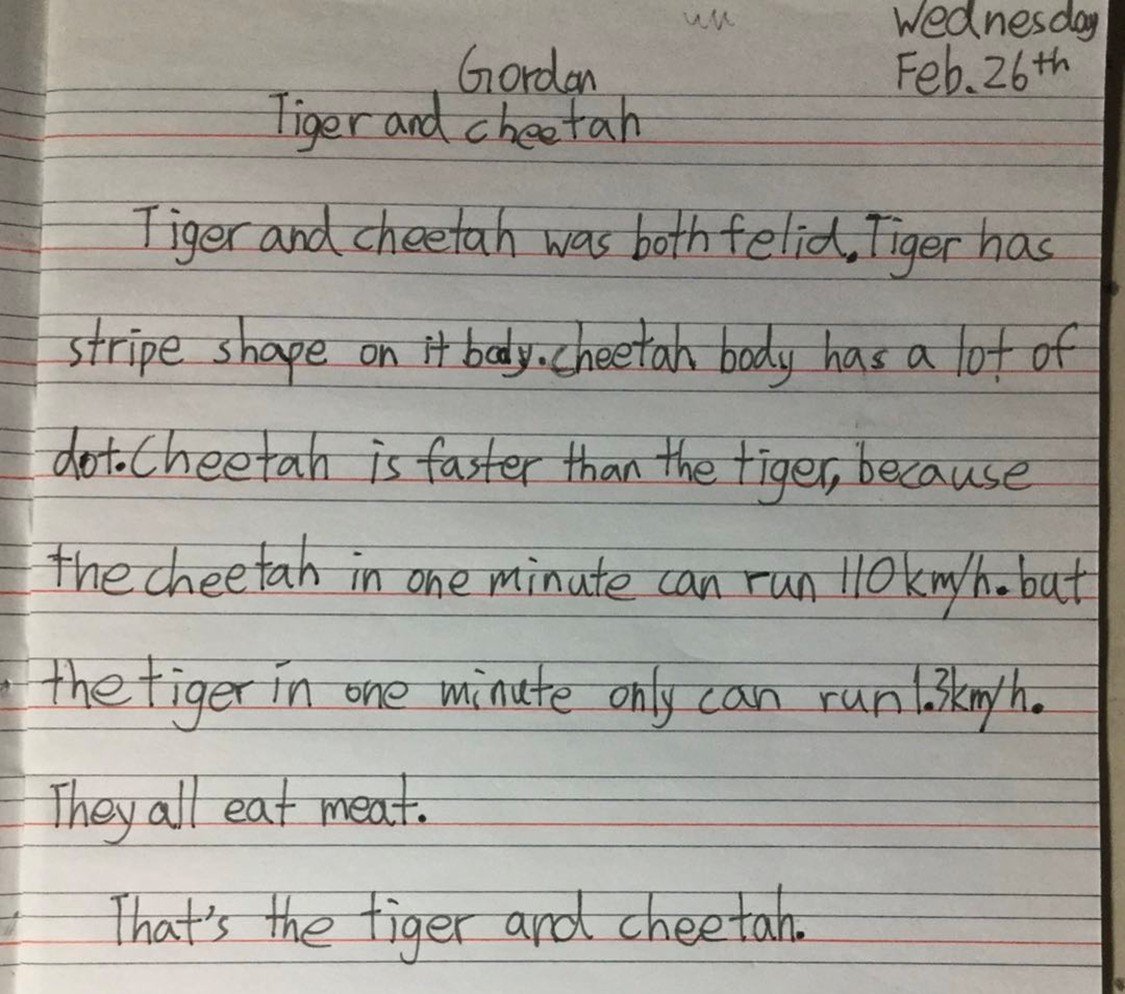 Wednesday
Feb. 26th
Gordon
Tiger and cheetah
Tiger and cheetah was both felid. Tiger has
stripe shape on it body. cheetah body has a lot of
dot. Cheetah is faster than the tiger, because
the cheetah in one minute can run 110 km/h. but
the tiger in one minute only can run 1.3km/h.
They all eat meat.
That's the tiger and cheetah.